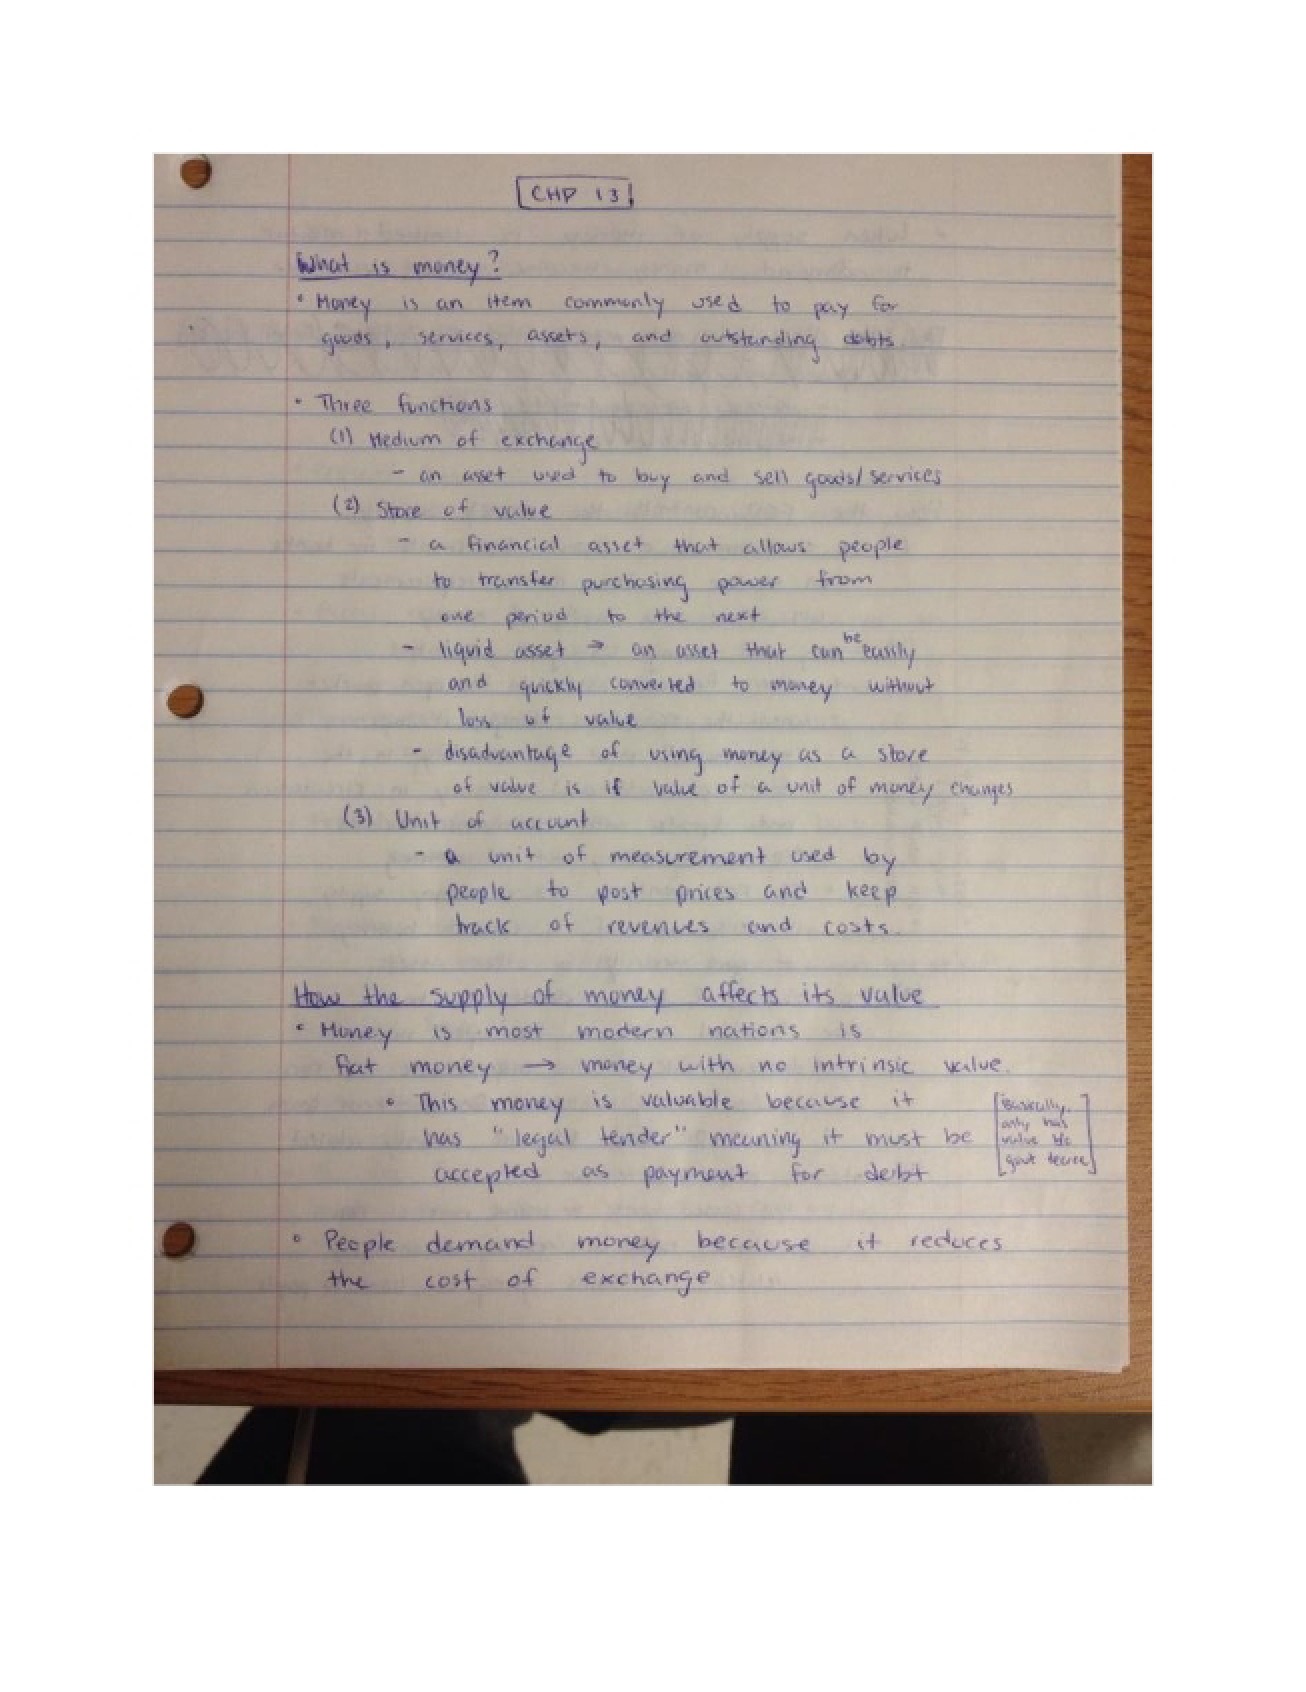 CHP 13
What is money?
• Money is an item commonly used to pay for
goods, services, assets, and outstanding debts.
• Three functions
(1) Medium of exchange
- an asset used to buy and sell goods/services
(2) Store of value
- a financial asset that allows people
to transfer purchasing power from
one period to the next
- liquid asset → an asset that can be easily
and quickly converted to money without
loss of value
- disadvantage of using money as a store
of value is if value of a unit of money changes
(3) Unit of account
- a unit of measurement used by
people to post prices and keep
track of revenues and costs.
How the supply of money affects its value
• Money is most modern nations is
fiat money → money with no intrinsic value.
• This money is valuable because it
has "legal tender" meaning it must be
accepted as payment for debt
[Basically,
only has
value b/c
govt decree]
• People demand money because it reduces
the cost of exchange